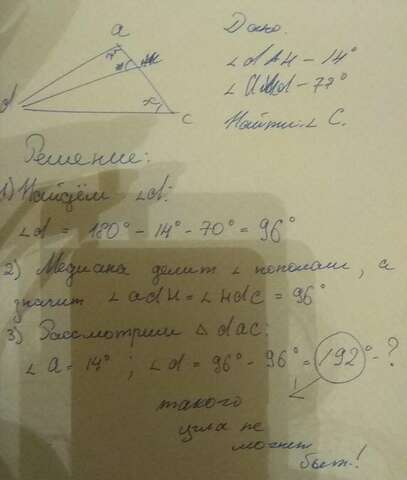 a
d
c
Дано.
∠dAH – 14°
– 77°
Найти: ∠ C.
Решение:
1) Найдём ∠d:
∠d = 180° – 14° – 70° = 96°
2) Медиана делит ∠ пополам, а
значит ∠adH = ∠HdC = 96°
3) Рассмотрим △ dac:
∠a = 14° ; ∠d = 96° – 96° = 192° – ?
такого
угла не
может
быть!